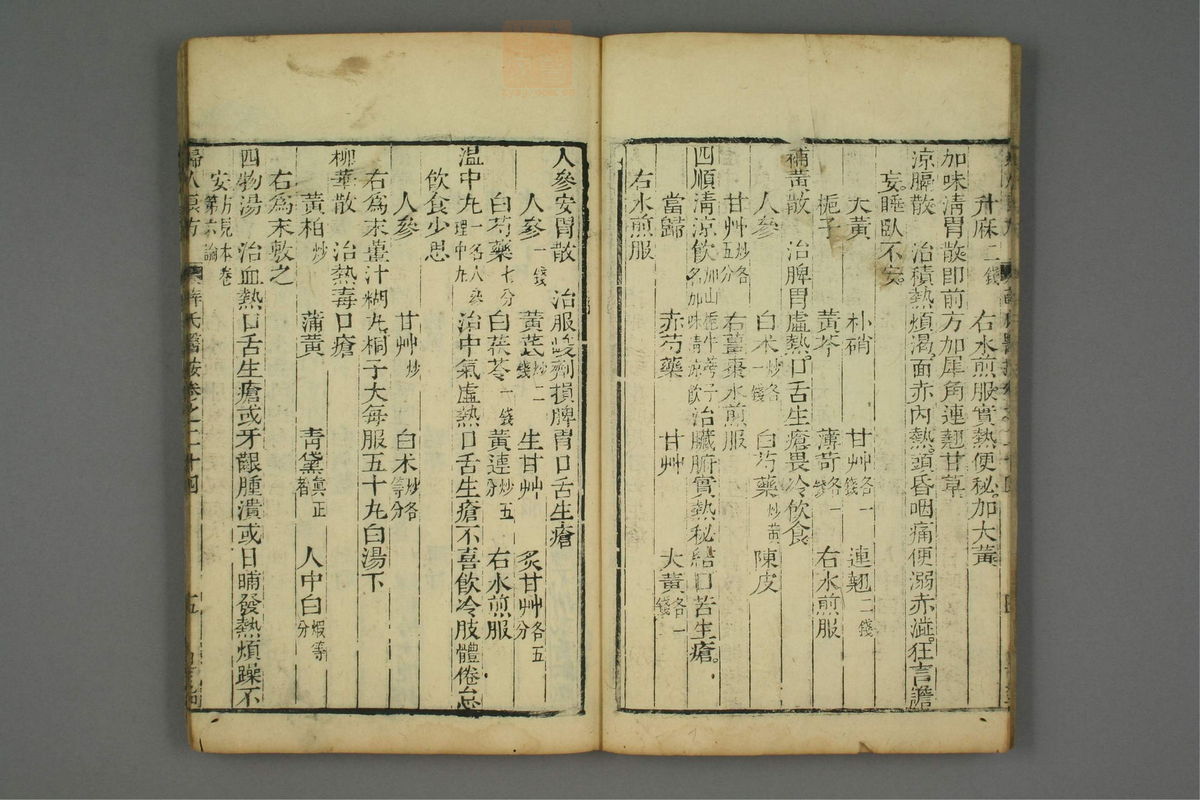 升麻二錢 右水煎服實熱便秘加大黃
加味清胃散即前方加犀角連翹甘草
涼膈散 治積熱煩渴面赤內熱頭昏咽痛便溺赤澁狂言譫
妄睡臥不安
大黃 朴硝 甘艸各一錢 連翹二錢
梔子 黃芩 薄苛各一錢 右水煎服
補黃散 治脾胃虛熱口舌生瘡畏冷飲食
人參 白术炒各一錢 白芍藥炒黃 陳皮
甘艸炒各五分 右薑棗水煎服
四順清涼飲加山梔牛蒡子名加味清涼飲 治臟腑實熱秘結口苦生瘡
當歸 赤芍藥 甘艸 大黃各一錢
右水煎服
人參安胃散 治服峻劑損脾胃口舌生瘡
人參一錢 黃茋炒二錢 生甘艸 炙甘艸各五分
白芍藥七分 白茯苓一錢 黃連炒五分 右水煎服
溫中丸一名人參理中丸 治中氣虛熱口舌生瘡不喜飲冷肢體倦怠
飲食少思
人參 甘艸炒 白术炒各等分
右爲末薑汁糊丸桐子大每服五十丸白湯下
柳華散 治熱毒口瘡
黃柏炒 蒲黃 青黛眞正者 人中白煅等分
右爲末敷之
四物湯 治血熱口舌生瘡或牙齦腫潰或日晡發熱煩躁不
安方見本卷第六論
婦人良方 薛氏醫按卷之二十四 五